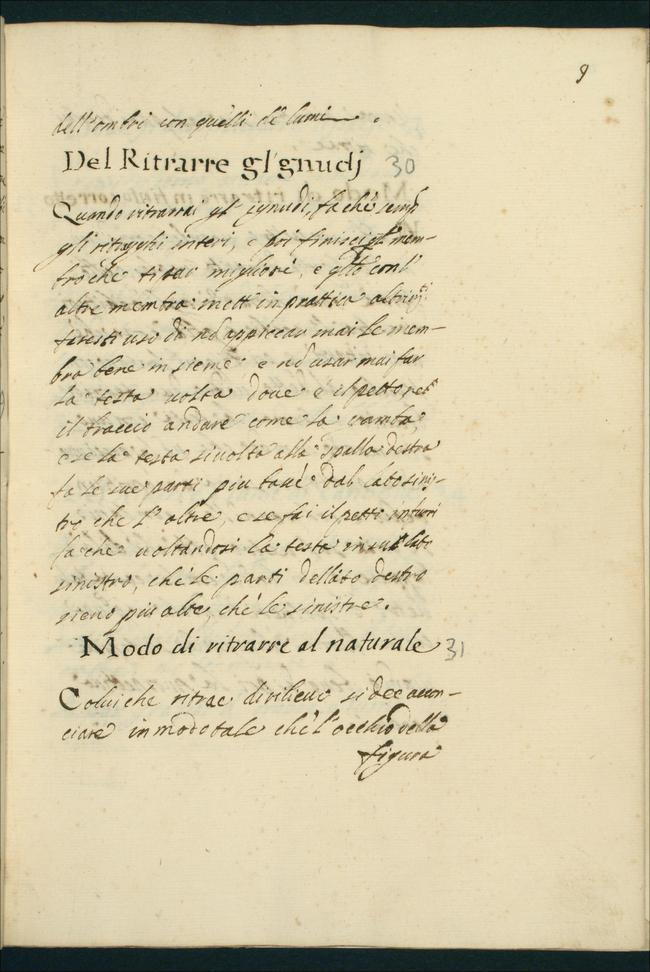 9
dell'ombri con quelli de lumi.
Del Ritrarre gl'gnudj 30
Quando ritrarrai gl' ignudi, fa che semp
gli ritragghi interi, e poi finisci ql mem-
bro che ti par migliore, e con l'
altre membra mett in prattica altrim.ti
faresti uso di nõ appiccar mai le mem-
bra bene insieme e nõ usar mai far
la testa uolta doue e il petto ne
il braccio andare come la gamba,
e se la testa si uolta alla spalla destra
fa le sue parti piu basse dal lato sinis-
tro che l'altre, e se fai il petto infuori
fa che uoltandosi la testa in sul lato
sinistro, che le parti del lato destro
sieno piu alte, che le sinistre.
Modo di ritrarre al naturale 31
Colui che ritrae di rilieuo si dee acon-
ciare in modo tale che l'occhio della
figura